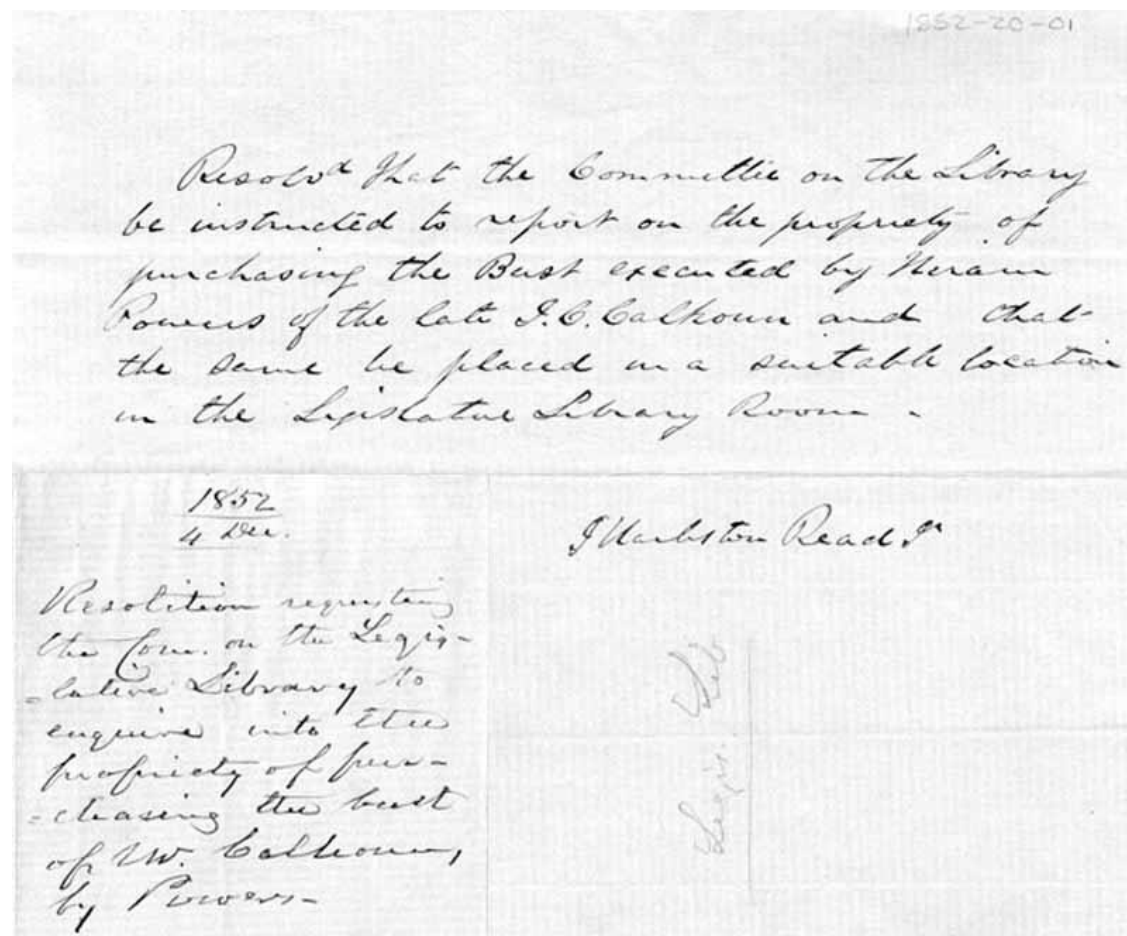 1852-20-01
Resolvd That the Committee on the Library
be instructed to report on the propriety of
purchasing the Bust executed by Hiram
Powers of the late J. C. Calhoun and that
the same be placed in a suitable location
in the Legislative Library Room -
1852
4 Dec.
Resolution requesting
the Com. on the Legis-
-lative Library to
enquire into the
propriety of pur-
=chasing the bust
of Mr. Calhoun,
by Powers-
J Harleston Read Jr
Legis. Lib